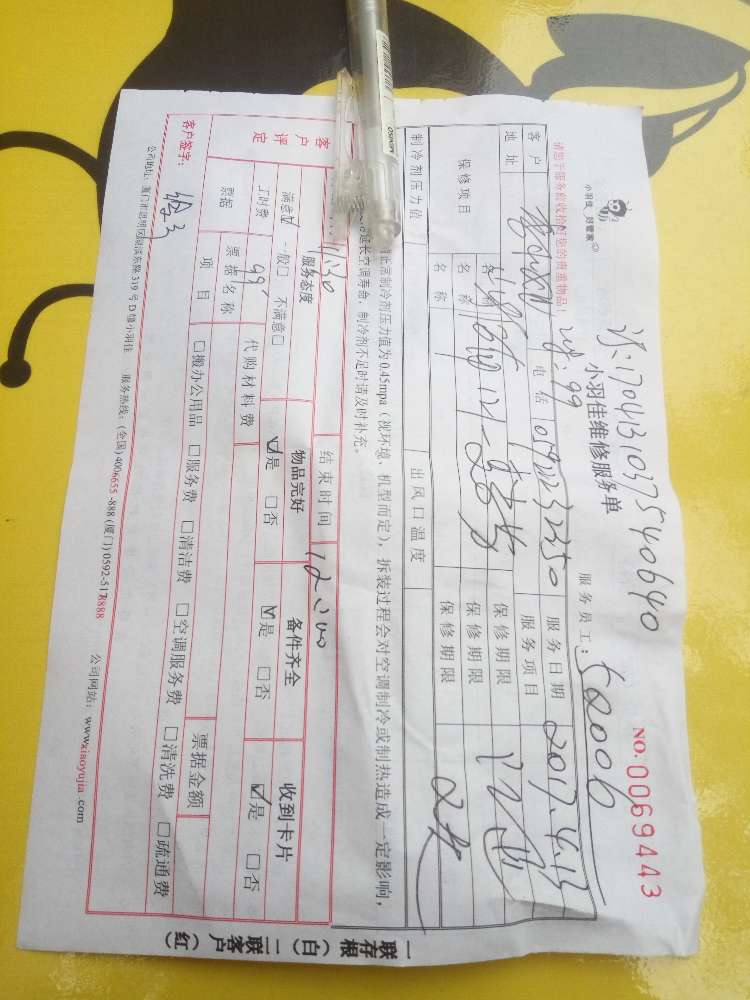 小羽佳 好管家
小羽佳维修服务单
NO.0069443
服务员工:
请您于服务前收捡好您的贵重物品!
客户
电话
服务日期 2017.4.13
地址
服务项目
保修项目
名称
保修期限
名称
保修期限
名称
保修期限
制冷剂压力值
出风口温度
正常制冷剂压力值为0.45mpa(视环境、机型而定),拆装过程会对空调制冷或制热造成一定影响,
延长空调寿命,制冷剂不足时请及时补充。
11:30
结束时间 12:00
客户评定
服务态度
物品完好
备件齐全
收到卡片
满意☑ 一般□ 不满意□
☑是 □否
☑是 □否
☑是 □否
工时费 99
代购材料费
票据
票据名称
票据金额
项目
□搬办公用品 □服务费 □清洁费 □空调服务费 □清洗费 □疏通费
客户签字:
公司地址:厦门市思明区湖滨东路319号D幢小羽佳 服务热线:(全国)4006655-888(厦门)0592-5178888 公司网站:www.xiaoyujia.com
一联存根(白) 二联客户(红)